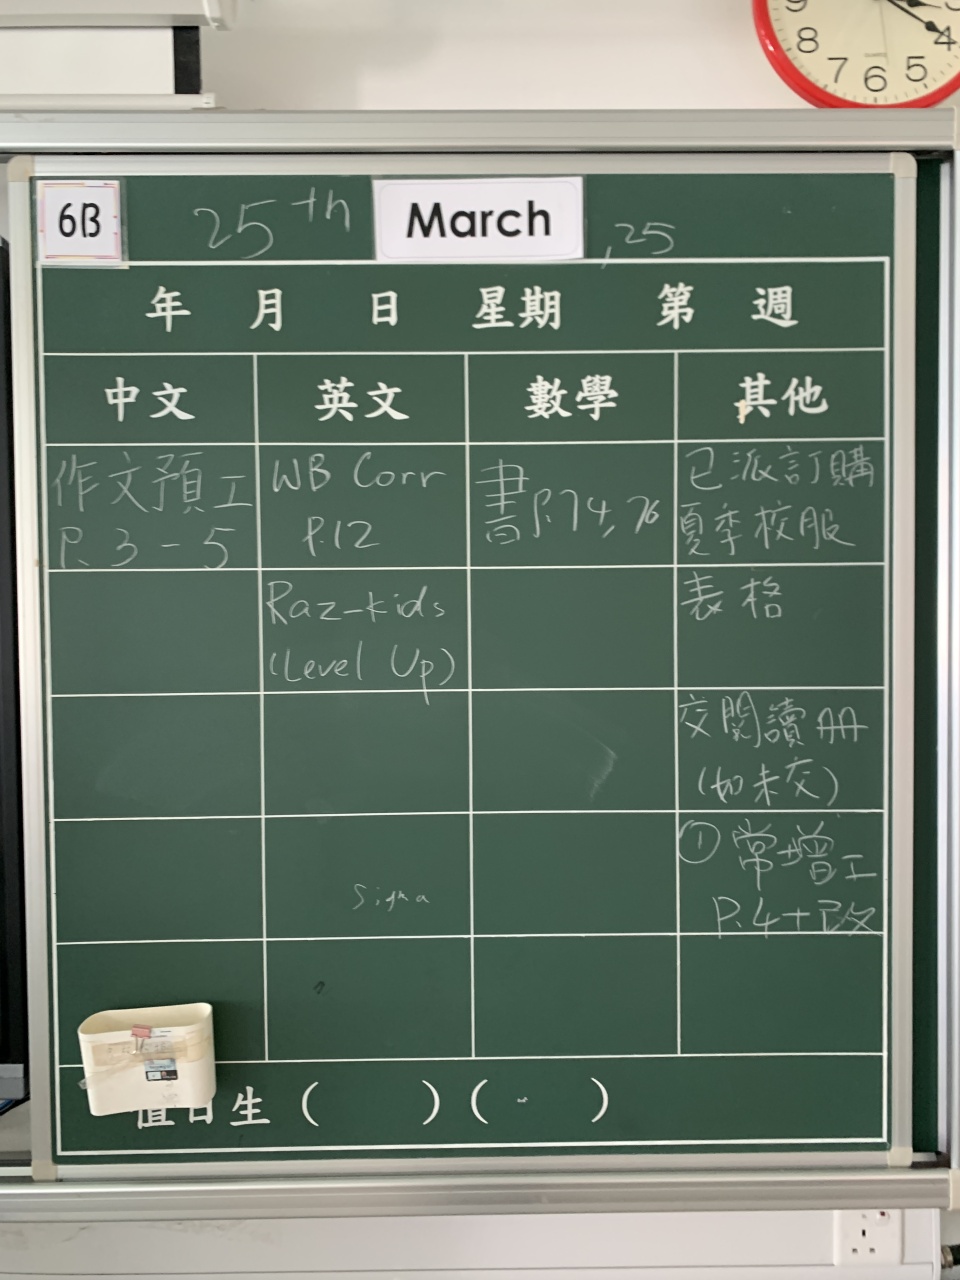 9 8 7 6 5 4
6B 25th March ,25
年 月 日 星期 第 週
中文 英文 數學 其他
作文預工
P.3-5
WB Corr
P.12
書P.74,76
已派訂購
夏季校服
Raz-kids
(Level Up)
表格
交閱讀冊
(如未交)
①常增工
P.4+改
Sigma
值日生( )( )